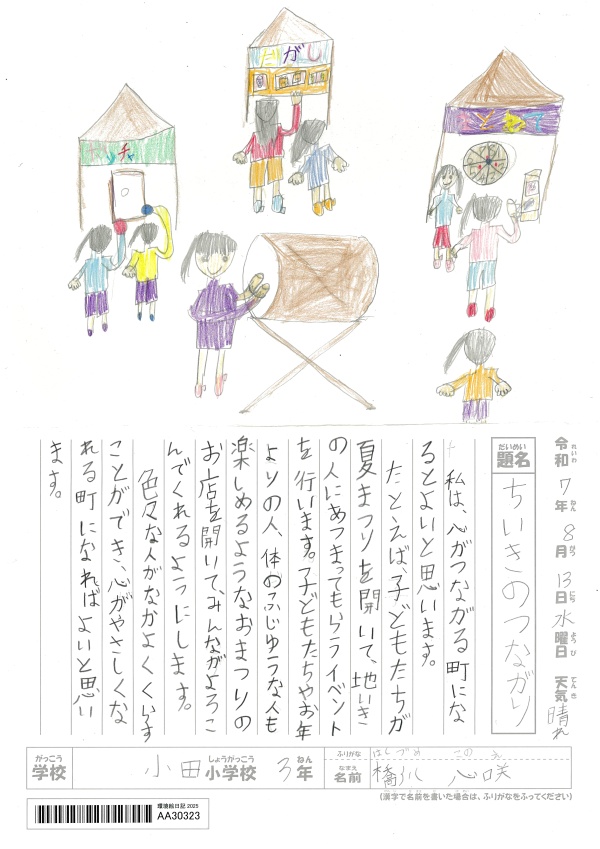 だがし
まとあて
令和7年8月13日水曜日 天気晴れ
れいわ ねん がつ にち ようび てんき
だいめい
題名 ちいきのつながり
私は、心がつながる町にな
るとよいと思います。
たとえば、子どもたちが
夏まつりを開いて、地いき
の人にあつまってもらうイベント
を行います。子どもたちやお年
よりの人、体のふじゆうな人も
楽しめるようなおまつりの
お店を開いて、みんながよろこ
んでくれるようにします。
色々な人がなかよくくらす
ことができ、心がやさしくな
れる町になればよいと思い
ます。
がっこう しょうがっこう ねん
学校 小田小学校 3年
ふりがな はしづめ このえ
なまえ
名前 橋爪 心咲
(漢字で名前を書いた場合は、ふりがなをふってください)
環境絵日記 2025
AA30323